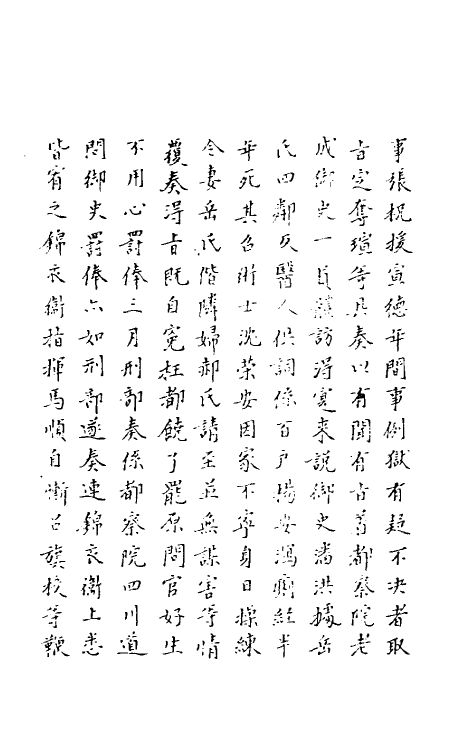 事張柷援宣德年間事例獄有疑不决者取
旨定奪瑄等具奏以有聞有古著都察院老
成御史一員體訪得寔来說御史潘洪據岳
氏四鄰及醫人供詞係百户楊安瀉痢經半
年死其召術士沈荣安因家不寜身日操練
令妻岳氏偕隣婦郝氏請至並無謀害等情
覆奏淂旨既自寃枉都饒了罷原問官好生
不用心罰俸三月刑部奏係都察院四川道
問御史罸俸六如刑部遂奏連錦衣衛上悉
皆宥之錦衣衛指揮馬順自慚召旗校等鞭